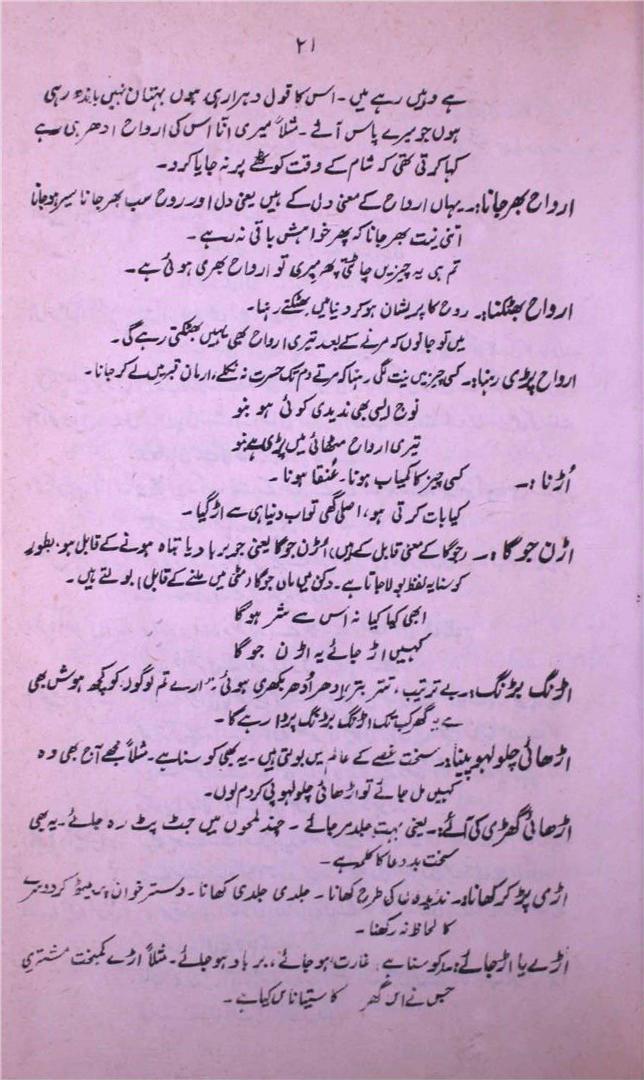 ۲۱
ہے وہیں رہے ہیں ۔ اس کا قول دہرا رہی ہوں بہتان نہیں باندھ رہی
ہوں جو میرے پاس آئے ۔ مثلاً میری انّا اس کی ارواح ادھر ہی رہے
کہا کرتی تھی کہ شام کے وقت کوٹھے پر نہ جایا کرو ۔
ارواح بھر جانا:۔ یہاں ارواح کے معنی دل کے ہیں یعنی دل اور روح سب بھر جانا سیر ہو جانا
اتنی نیت بھر جانا کہ پھر خواہش باقی نہ رہے ۔
تم ہی یہ چیزیں چاٹتی پھرو میری تو ارواح بھری ہوئی ہے ۔
ارواح بھٹکنا:۔ روح کا پریشان ہو کر دنیا میں بھٹکتے رہنا ۔
میں تو جانوں کہ مرنے کے بعد تیری ارواح بھی یہیں بھٹکتی رہے گی ۔
ارواح پڑی رہنا:۔ کسی چیز میں نیت لگی رہنا کہ مرتے دم تک حسرت نہ نکلے، ارمان قبر میں لے کر جانا ۔
نوج ایسی بھی ندیدی کوئی ہو بنو
تیری ارواح مٹھائی میں پڑی ہے بنو
اُڑنا :۔ کسی چیز کا کمیاب ہونا ۔ عُنقا ہونا ۔
کیا بات کرتی ہو، اصلی گھی تو اب دنیا ہی سے اڑ گیا ۔
اڑن جوگا :۔ (جوگا کے معنی قابل کے ہیں) اڑن جوگا یعنی جو برباد یا تباہ ہونے کے قابل ہو، بطور
کوسنا یہ لفظ بولا جاتا ہے ۔ دکن میں ماٹی جوگا (مٹی میں ملنے کے قابل) بولتے ہیں ۔
ابھی کیا کیا نہ اس سے شر ہوگا
کہیں اڑ جائے یہ اڑن جوگا
اڑنگ بڑنگ:۔ بے ترتیب، تتر بتر، اِدھر اُدھر بکھری ہوئی ۔ ارے تم لوگوں کو کچھ ہوش بھی
ہے یہ گھر کب تک اڑنگ بڑنگ پڑا رہے گا ۔
اڑھائی چلو لہو پینا:۔ سخت غصے کے عالم میں بولتی ہیں ۔ یہ بھی کوسنا ہے ۔ مثلاً مجھے آج بھی وہ
کہیں مل جائے تو اڑھائی چلو لہو پی کر دم لوں ۔
اڑھائی گھڑی کی آئے:۔ یعنی بہت جلد مر جائے ۔ چند لمحوں میں چٹ پٹ رہ جائے ۔ یہ بھی
سخت بددعا کا کلمہ ہے ۔
اڑی پڑ کر کھانا:۔ ندیدوں کی طرح کھانا ۔ جلدی جلدی کھانا ۔ دسترخوان پر بیٹھ کر دوسرے
کا لحاظ نہ رکھنا ۔
اُڑے یا اڑ جائے:۔ کوسنا ہے، غارت ہو جائے، برباد ہو جائے ۔ مثلاً اڑے کمبخت مشتری
جس نے اس گھر کا ستیاناس کیا ہے ۔